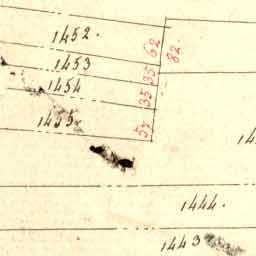 1452. 62 82.
1453 35
1454 35
1455
1444.
1443